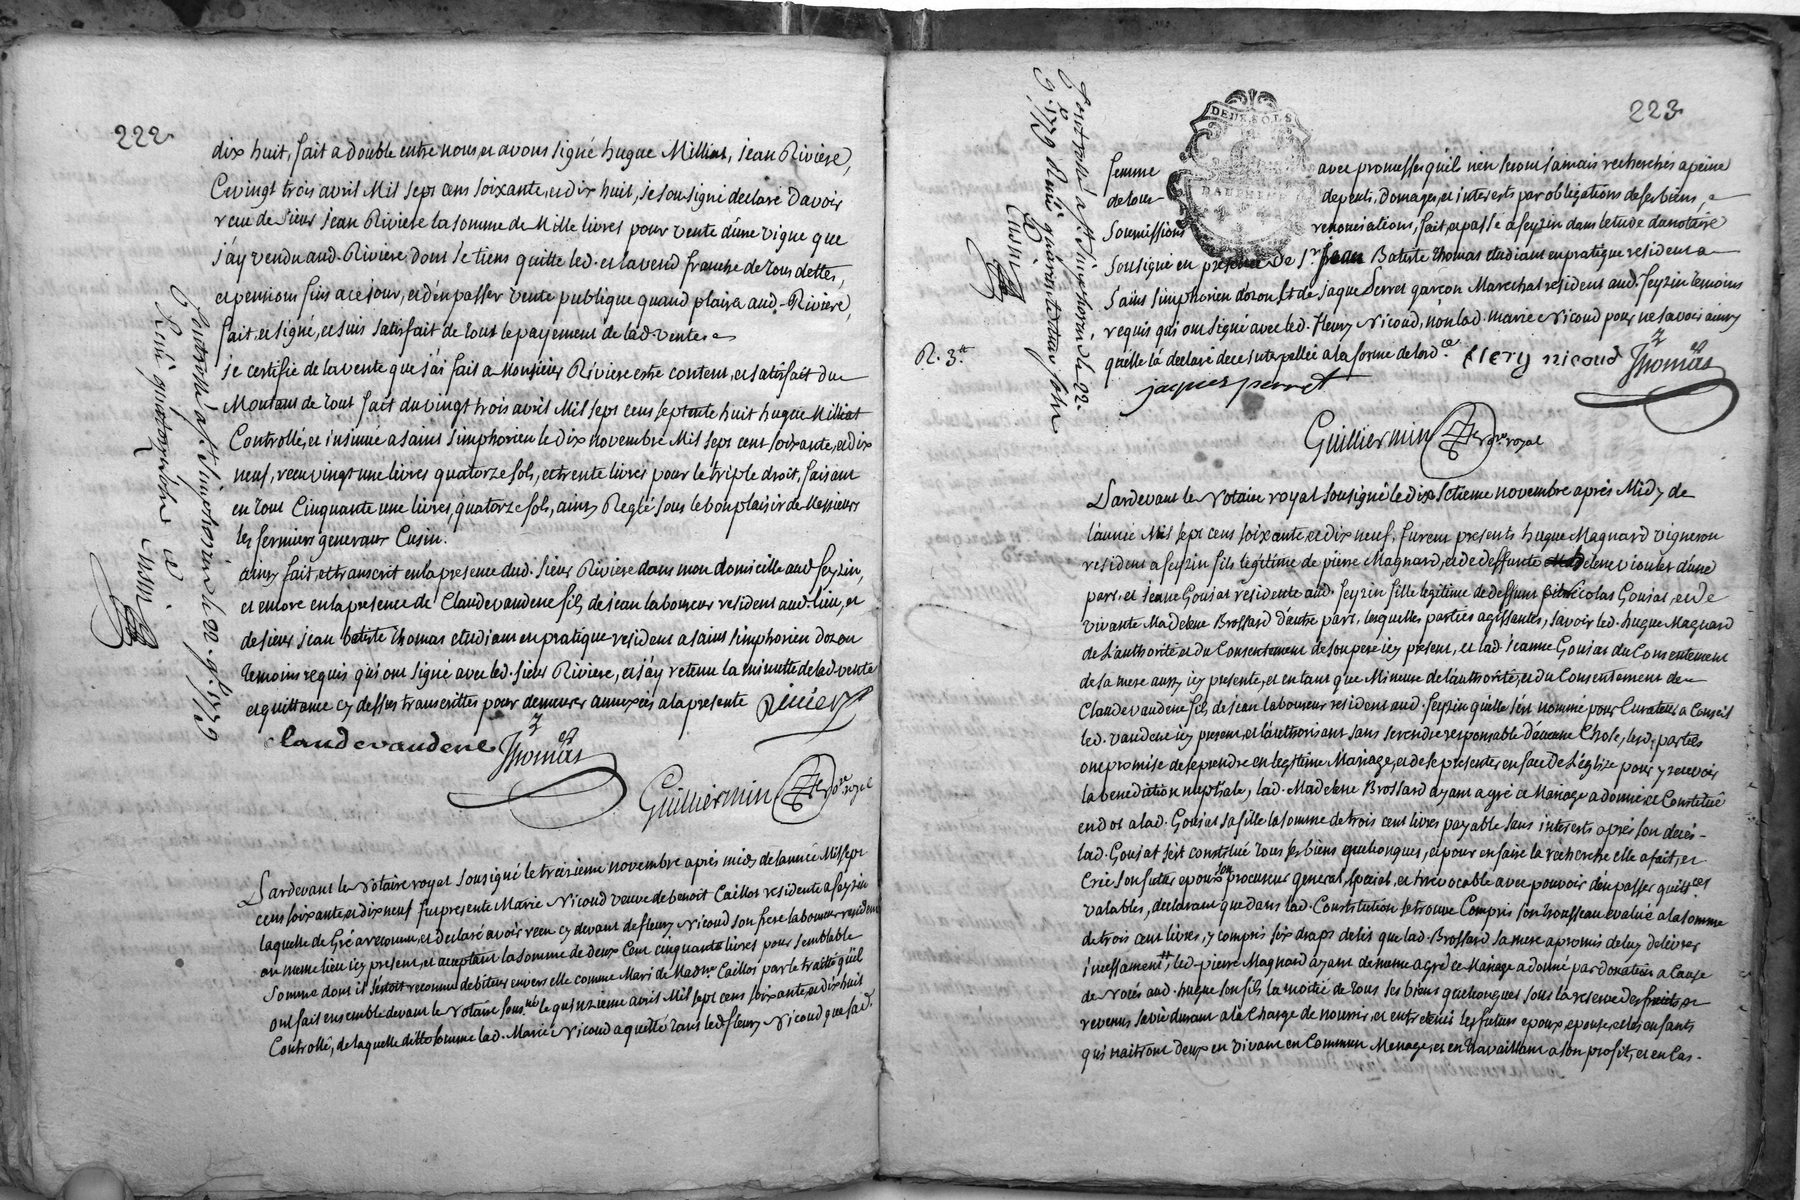 222
dix huit, fait a double entre nous, et avons signé hugue Milliat, jean Riviere,
Ce vingt trois avril Mil sept cens soixante, et dix huit, je sousigné declare davoir
recu de sieur jean Riviere la somme de Mille livres pour vente d'une vigne que
j'ay vendu aud. Riviere, dont je tiens quitte led. et la vend franche de tous dettes,
et pensions sins a ce jour, et d'en passer vente publique quand plaira aud. Riviere,
fait, et signé, et suis satisfait de tout le payement de lad. vente
je certifie de la vente que j'ai fait a Monsieur Riviere estre content, et satisfait du
Montant de tout fait du vingt trois avril Mil sept cens septente huit hugue Milliat
Controllé, et insinué a saint simphorien le dix novembre Mil sept cent soixante, et dix
neuf, recu vingt une livres quatorze sols, et trente livres pour le triple droit, faisant
en tout Cinquante une livres, quatorze sols, ainsy Reglé sous le bon plaisir de Messieurs
les fermiers generaux Cusin.
ainsy fait, et transcrit en la presence dud. sieur Riviere dans mon domicille aud. feyzin,
et encore en la presence de Claude vaudene fils de jean laboureur resident aud. lieu, et
de sieur jean batiste thomas etudiant en pratique resident a saint simphorien dozon
temoins requis qui ont signé avec led. sieur Riviere, et j'ay retenu la minutte de lad. vente
et quittance cy dessus transcrittes pour demeurer annexées a la presente Riviere
claude vaudene Thomas
Guilliermin no.re royal
Controllé a st simphorien le 22. 9.bre 1779
Reçu quatorze sols
Cusin
Pardevant le Notaire royal sousigné le treizieme novembre après midy de l'année Mil sept
cens soixante, et dix neuf fut presente Marie Nicoud veuve de benoit Caillot residente a feyzin
laquelle de Gré a reconnu, et declaré avoir recu cy devant de fleury Nicoud son frere laboureur resident
au meme lieu icy present, et acceptant la somme de deux Cent cinquante livres pour semblable
somme dont il s'etoit reconnu debiteur envers elle comme Mari de Mad.ne Caillot par le traitté qu'il
ont fait ensemble devant le Notaire sous.né le quinzieme avril Mil sept cens soixante, et dix huit
Controllé, de laquelle ditte somme lad. Marie Nicoud a quitté tant led. fleury Nicoud que sad.
223
DEUX SOLS
DAUPHINE
femme avec promesse qu'il n'en seront jamais recherchés a peine
de tous depents, domages, et interests par obligations de ses biens,
soumissions renonciations, fait, et passé a feyzin dans l'etude du notaire
sousigné en presence de sr. jean Batiste thomas etudiant en pratique resident a
saint simphorien d'ozon, et de jaque Perret garçon Marechal resident aud. feyzin temoins
requis qui ont signé avec led. fleury Nicoud, non lad. marie Nicoud pour ne savoir ainsy
quelle la declaré de ce interpellée a la forme de lord.ce flery nicoud Thomas
jaques perret
Guilliermin no.re royal
R. 3.tt
Controllé a st simphorien le 22.
9.bre 1779 Reçu quarante deux sols
Cusin
Pardevant le Notaire royal sousigné le dix setieme novembre après Midy de
l'année Mil sept cens soixante, et dix neuf, furent presents hugue Magnard vigneron
resident a feyzin fils legitime de pierre Magnard, et de deffunte helene vioulet d'une
part, et jeane Goujat residente aud. feyzin fille legitime de deffunt Nicolas Goujat, et de
vivante Madelene Brossard d'autre part, lesquelles parties agissantes, savoir led. hugue Magnard
de l'authorité, et du Consentement de son pere icy present, et lad. jeanne Goujat du Consentement
de sa mere aussy icy presente, et en tant que Mineure de l'authorité, et du Consentement de
Claude vaudene fils de jean laboureur resident aud. feyzin qu'elle s'est nommé pour Curateur a Conseil
led. vaudene icy present, et l'authorisant sans se rendre responsable d'aucune Chose, lesd. parties
ont promise de se prendre en legitime Mariage, et de se presenter en face de L'églize pour y recevoir
la benediction nuptiale, lad. Madelene Brossard ayant agré ce Mariage a donné, et Constitué
en dot a lad. Goujat sa fille la somme de trois cent livres payable sans interests après son decés
lad. Goujat s'est constitué tous ses biens quelconques, et pour en faire la recherche elle a fait, et
Créé son futur epoux son procureur general, special, et irrevocable avec pouvoir d'en passer quitt.ces
valables, declarant que dans lad. Constitution se trouve Compris son trousseau evalué a la somme
de trois cent livres, y compris six draps de lit que lad. Brossard sa mere a promis de luy delivrer
incessament, led. pierre Magnard ayant de meme agré ce Mariage a donné par donation a Cause
de noces aud. hugue son fils la moitié de tous ses biens quelconques sous la reserve des fruits, et
revenus sa vie durant a la Charge de nourrir, et entretenir les futurs epoux, epouse, et les enfants
qui naitront deux en vivant en Commun Menage, et en travaillant a son profit, et en Cas.